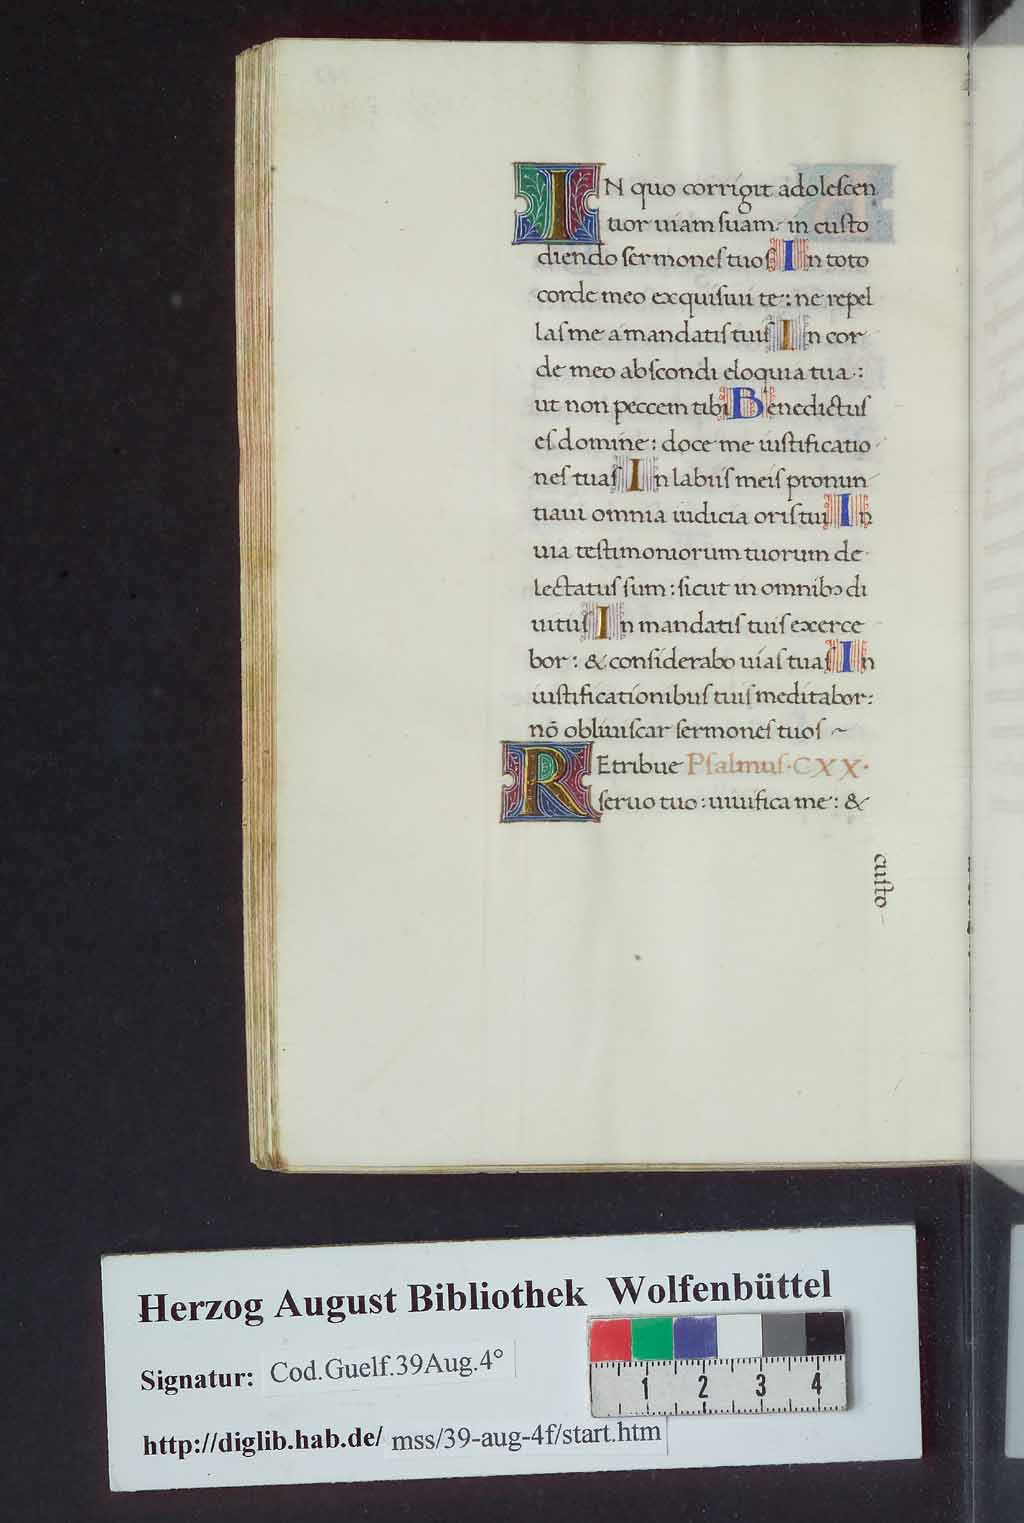 IN quo corrigit adolescen
tior uiam suam: in custo
diendo sermones tuos In toto
corde meo exquisiui te: ne repel
las me a mandatis tuis In cor
de meo abscondi eloquia tua:
ut non peccem tibi Benedictus
es domine: doce me iustificatio
nes tuas In labiis meis pronun
tiaui omnia iudicia oris tui In
uia testimoniorum tuorum de
lectatus sum: sicut in omnibꝫ di
uitiis In mandatis tuis exerce
bor: & considerabo uias tuas In
iustificationibus tuis meditabor:
nō obliuiscar sermones tuos ~
REtribue Psalmus·CXX·
seruo tuo: uiuifica me: &
custo
Herzog August Bibliothek Wolfenbüttel
Signatur: Cod.Guelf.39Aug.4°
http://diglib.hab.de/ mss/39-aug-4f/start.htm
1 2 3 4